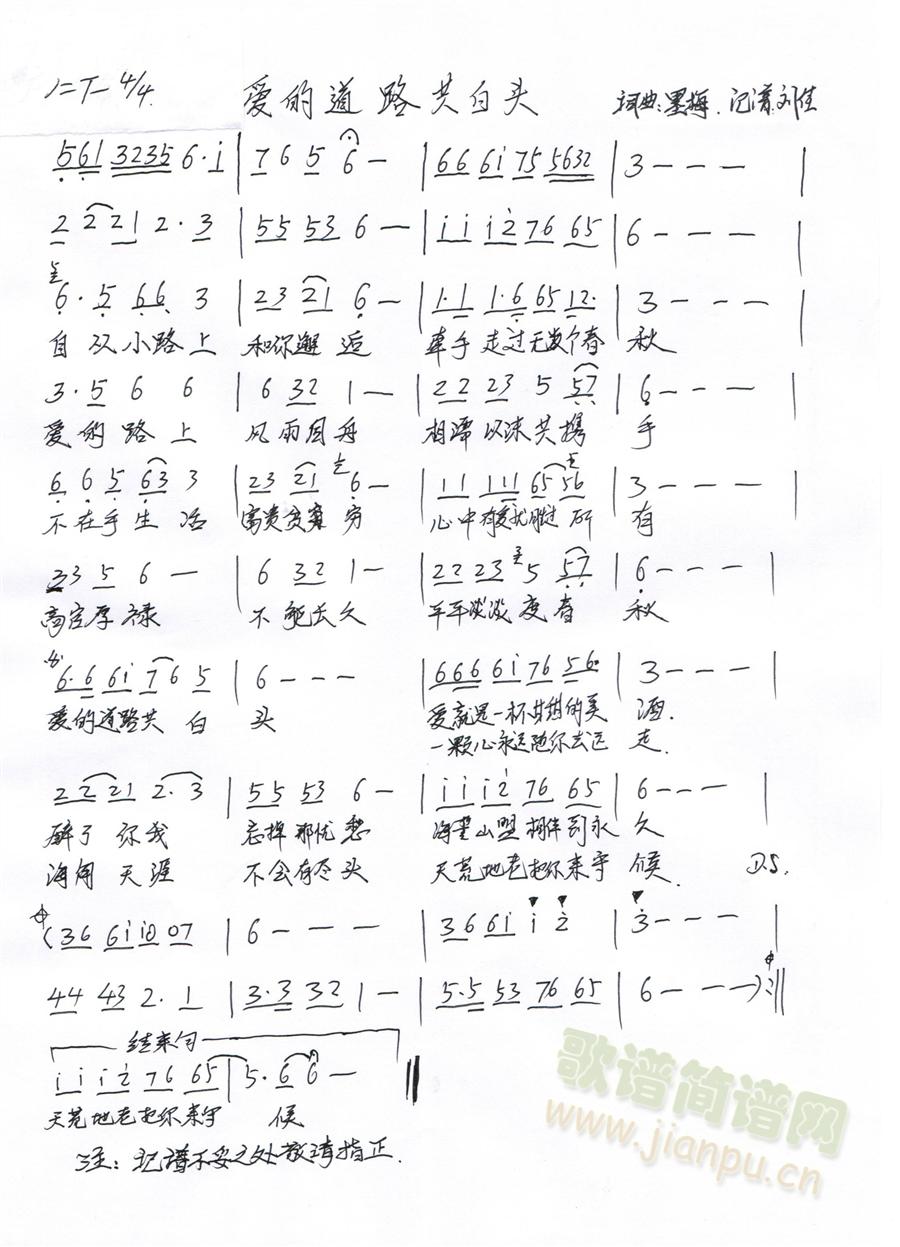 1=F 4/4 爱的道路共白头 词曲:墨梅 记谱:刘佳
561 3235 6·i | 7 6 5 6 - | 66 6i 75 5632 | 3 - - - |
2 221 2·3 | 55 53 6 - | i i i2 76 65 | 6 - - - |
6·5 66 3 | 23 21 6 - | 1·1 1·6 65 12· | 3 - - - |
自从小路上 和你邂逅 牵手走过无数个春 秋
3·5 6 6 | 6 32 1 - | 22 23 5 57 | 6 - - - |
爱的路上 风雨同舟 相濡以沫共携 手
6 6 5 63 3 | 23 21 6 - | 11 111 65 56 | 3 - - - |
不在乎生活 富贵贫穷 心中有爱就胜过所 有
3 3 5 6 - | 6 32 1 - | 22 23 5 57 | 6 - - - |
高官厚禄 不能长久 平平淡淡度春 秋
6·6 6i 7 6 5 | 6 - - - 666 6i 76 56· | 3 - - - |
爱的道路共白 头 爱就是一杯甘甜的美 酒.
一颗心永远随你去远 走.
22 21 2·3 | 55 53 6 - | i i i2 76 65 | 6 - - - |
醉了你我 忘掉那忧愁 海誓山盟相伴到永 久
海角天涯 不会有尽头 天荒地老把你来守 候. D.S.
(36 6i i0 07 | 6 - - - | 36 6i i 2 | 3 - - - |
44 43 2·1 | 3·3 32 1 - | 5·5 53 76 65 | 6 - - -):||
结束句
i i i2 76 65 | 5·6 6 - ||
天荒地老把你来守 候
注:记谱不妥之处敬请指正.
歌谱简谱网
www.jianpu.cn